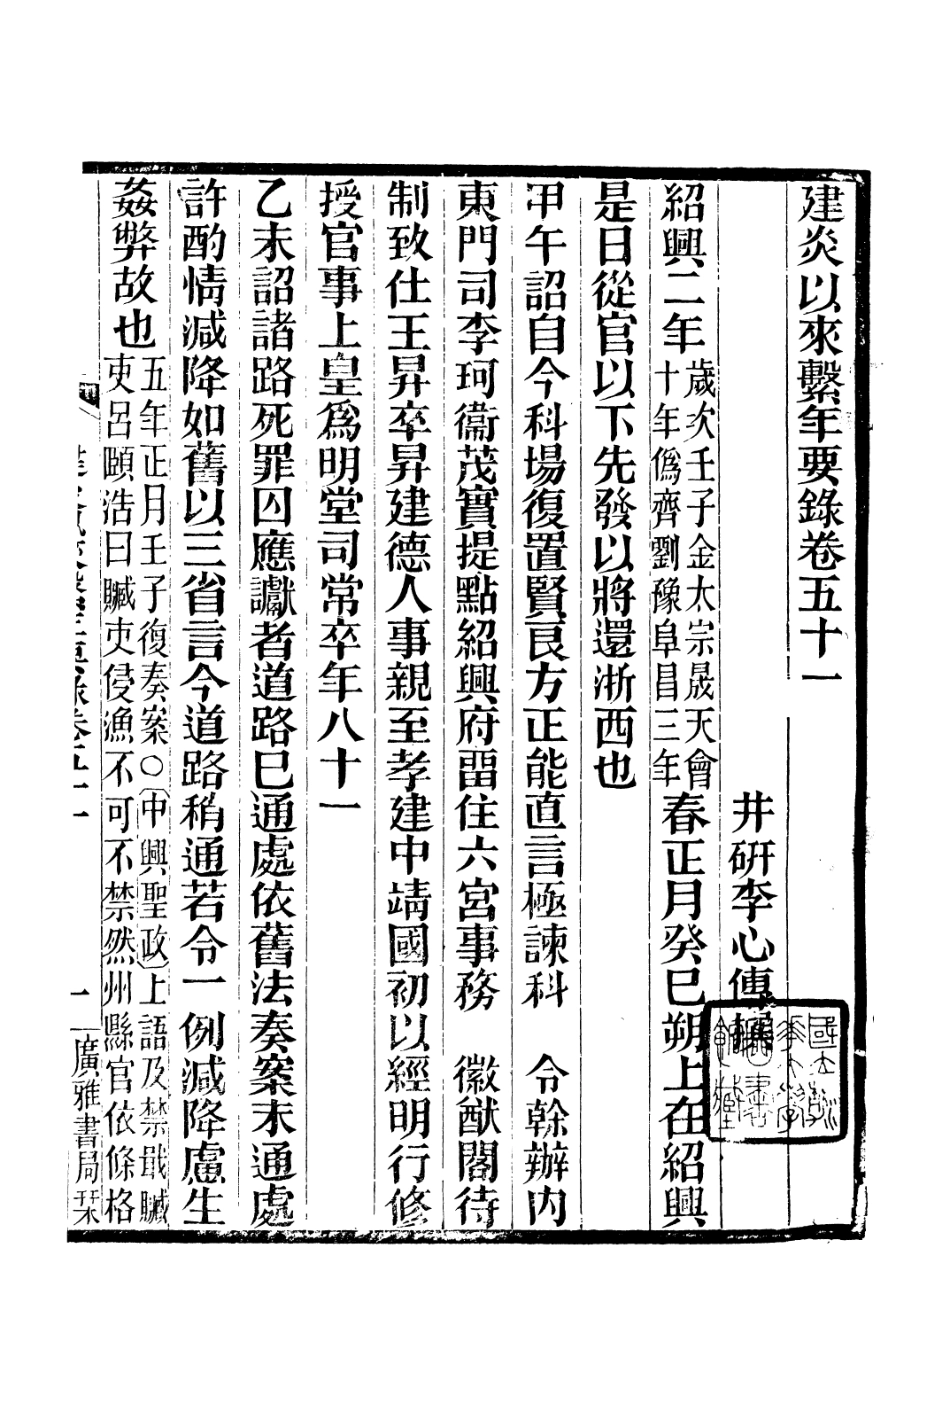 建炎以來繫年要錄卷五十一
井硏李心傳撰
紹興二年歲次壬子金太宗晟天會十年僞齊劉豫阜昌三年春正月癸巳朔上在紹興
是日從官以下先發以將還浙西也
甲午詔自今科場復置賢良方正能直言極諫科　令幹辦內
東門司李珂衞茂實提點紹興府畱住六宮事務　徽猷閣待
制致仕王昇卒昇建德人事親至孝建中靖國初以經明行修
授官事上皇爲明堂司常卒年八十一
乙未詔諸路死罪囚應讞者道路已通處依舊法奏案未通處
許酌情減降如舊以三省言今道路稍通若令一例減降慮生
姦弊故也五年正月壬子復奏案○〔中興聖政〕上語及禁戢贓
吏呂頤浩曰贓吏侵漁不可不禁然州縣官依條格
卷五十一
一
廣雅書局栞